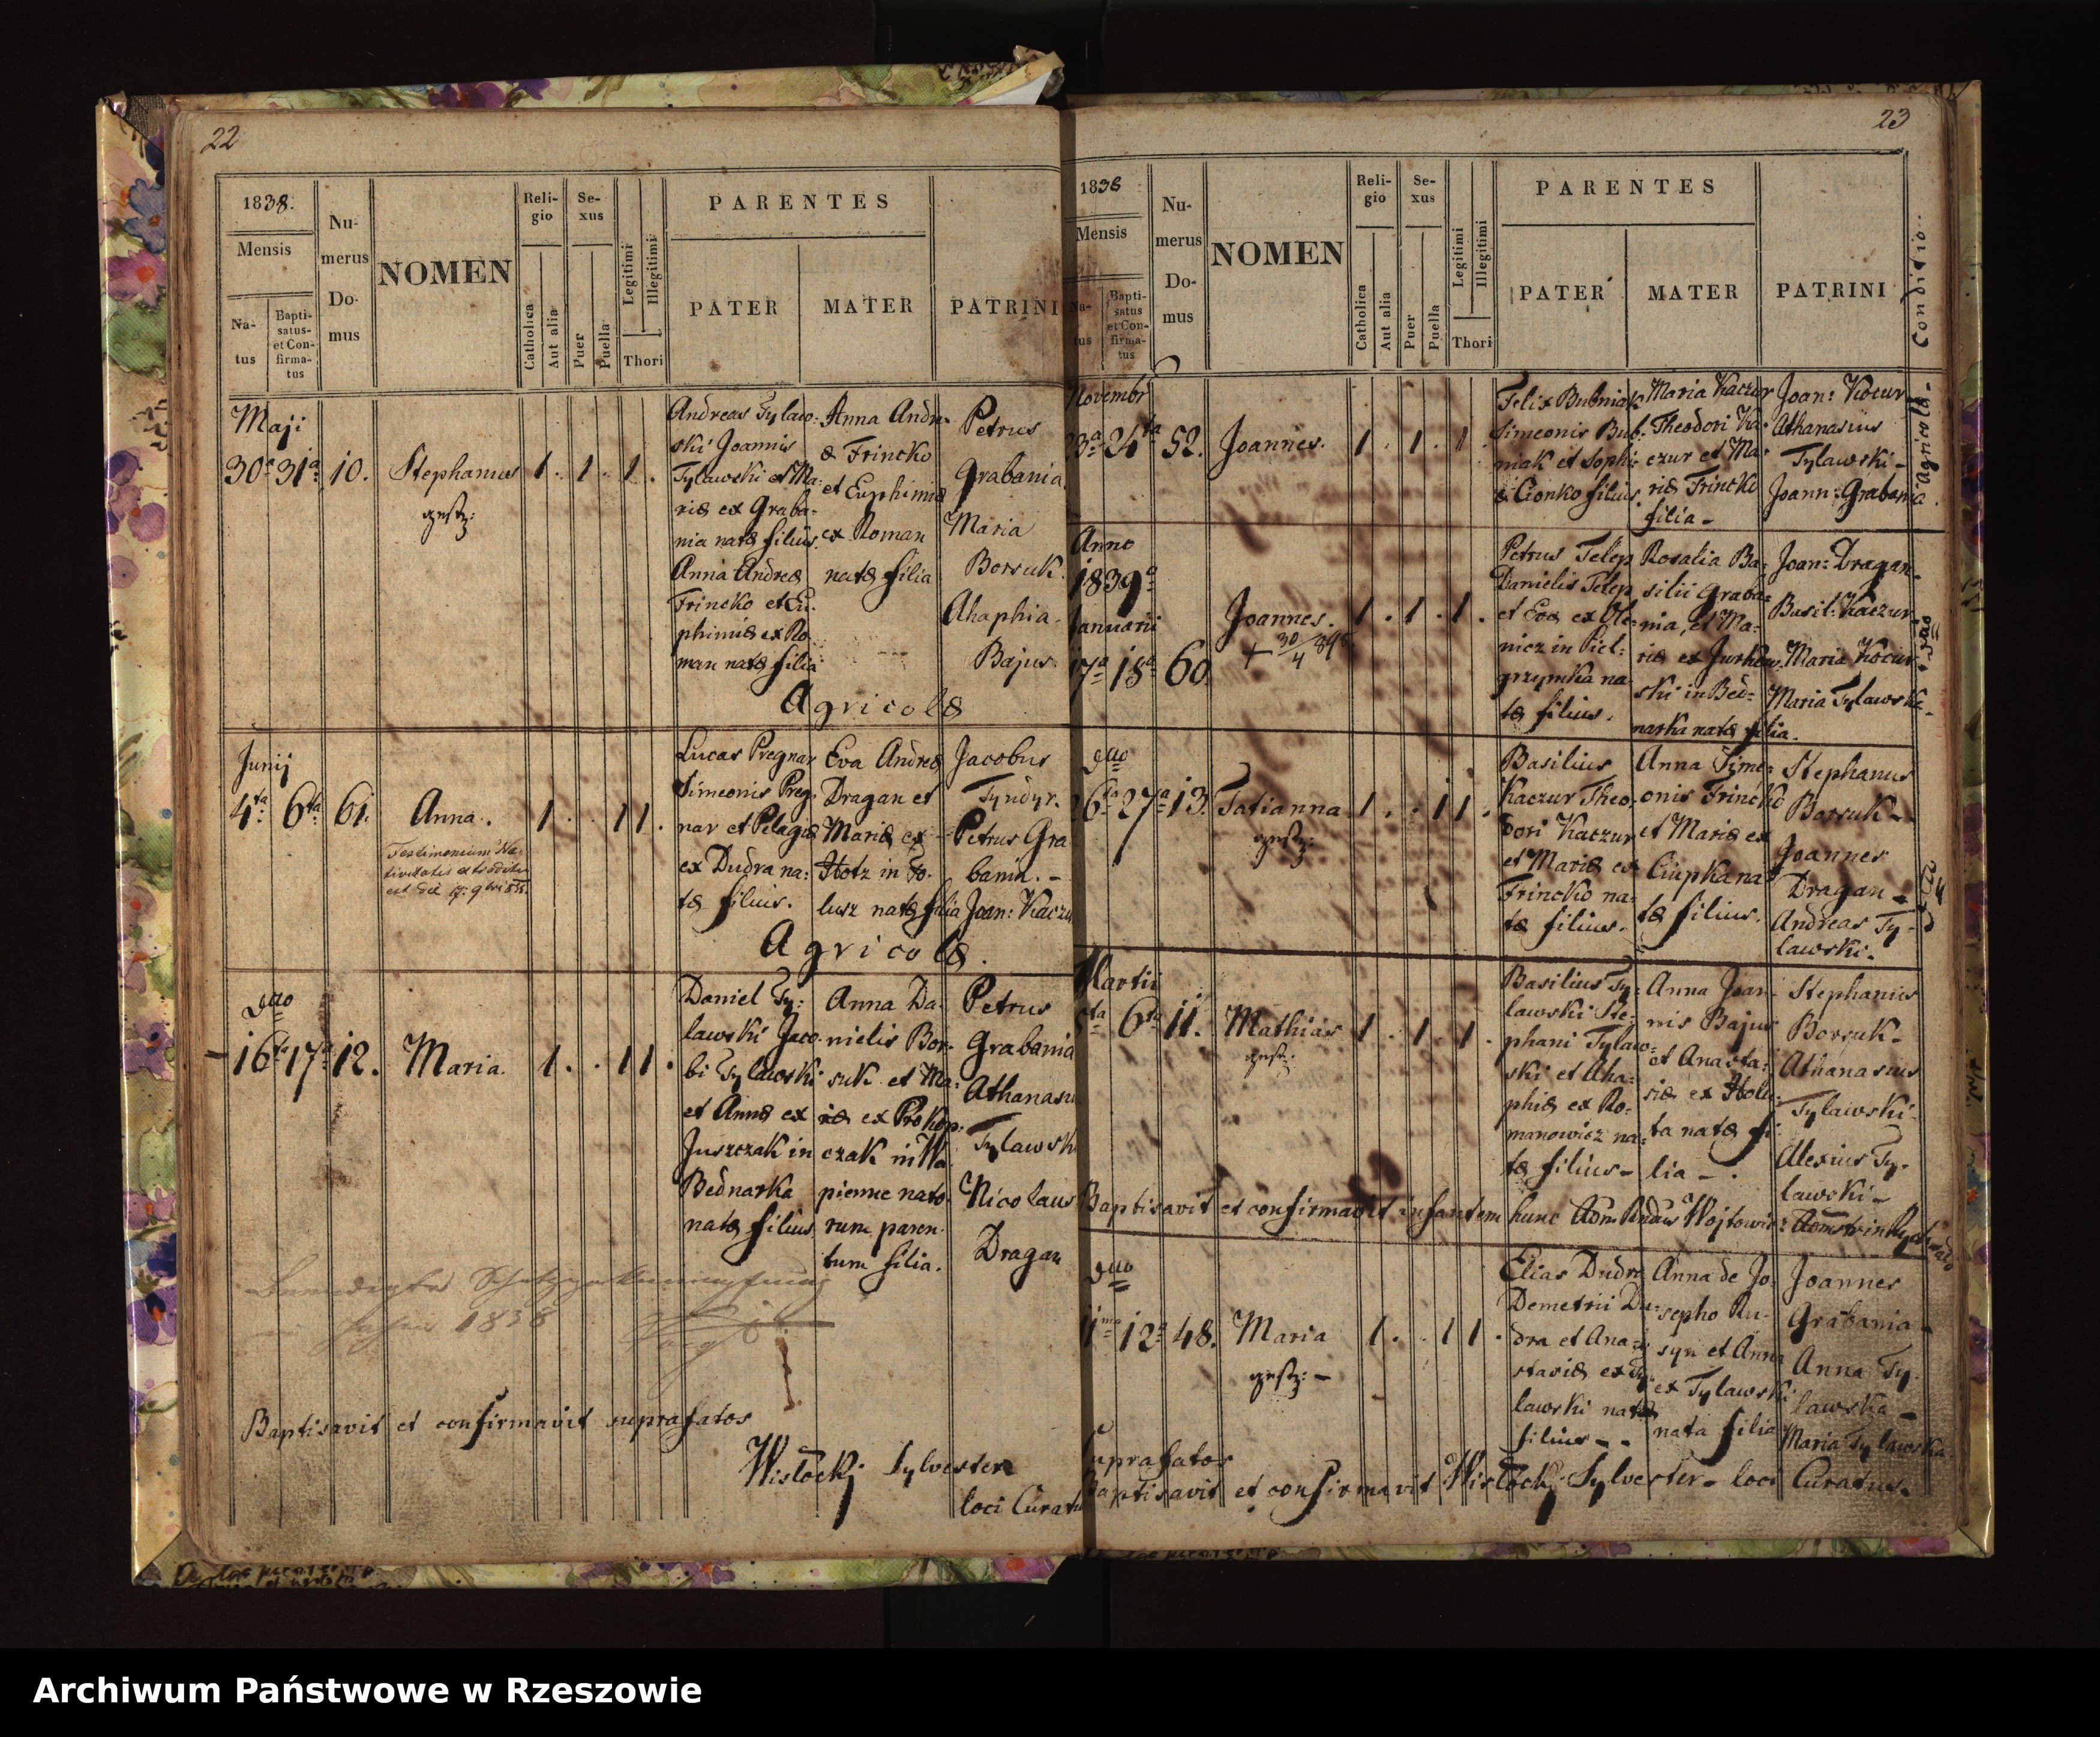 22
1838.
Mensis
Na-
tus
Bapti-
satus-
et Con-
firma-
tus
Nu-
merus
Do-
mus
NOMEN
Reli-
gio
Catholica
Aut alia
Se-
xus
Puer
Puella
Legitimi
Illegitimi
Thori
PARENTES
PATER
MATER
PATRINI
Maji
30ª 31ª 10. Stephanus 1. 1. 1.
Andreas Tylaw-
ski Joannis
Tylawski et Ma-
riæ ex Graba-
nia natæ filius.
Anna Andreæ
Frincko et Eu-
phimiæ ex Ro-
man natæ filia
Anna Andre-
æ Frincko
et Euphimiæ
ex Roman
natæ filia
Petrus
Grabania
Maria
Borsuk.
Ahaphia
Bajus.
Agricolæ
Junij
4ta 6ta 61. Anna. 1. . 1 1.
Testimonium Na-
tivitatis extraditum
est die
Lucas Pregnar
Simeonis Preg-
nar et Pelagiæ
ex Dudra na-
tæ filius.
Eva Andreæ
Dragan et
Mariæ ex
Hotz in Fo-
lusz natæ filia
Jacobus
Tyndyr.
Petrus Gra
bania. -
Joan: Kaczu
Agricolæ.
dtto
16ta 17ª 12. Maria. 1. . 1 1.
Daniel Ty-
lawski Jaco-
bi Tylawski
et Annæ ex
Juszczak in
Bednarka
natæ filius
Anna Da-
nielis Bor-
suk et Ma-
riæ ex Prokop-
czak in Wa-
pienne nato-
rum paren-
tum filia.
Petrus
Grabania
Athanasiu
Tylawsk
Nicolaus
Dragan
1838
Baptisavit et confirmavit suprafatos
Wislocki Sylvester
loci Curatu
23
1838
Mensis
Na-
tus
Bapti-
satus
et Con-
firma-
tus
Nu-
merus
Do-
mus
NOMEN
Reli-
gio
Catholica
Aut alia
Se-
xus
Puer
Puella
Legitimi
Illegitimi
Thori
PARENTES
PATER
MATER
PATRINI
Conditio.
Novembr
23ª 24ta 52. Joannes. 1. 1. 1
Felix Bubniak
Simeonis Bub-
niak et Sophi-
æ Cionko filius
Maria Kaczur
Theodori Ka-
czur et Ma-
riæ Frincko
filia -
Joan: Kocur
Athanasius
Tylawski -
Joann: Grabania
Agricola -
Anno
1839ª
Januarii
17ª 18ª 60. Joannes. 1. 1. 1.
+ 30/4
Petrus Telep
Danielis Telep
et Evæ ex Ole-
nicz in Piel-
grzymka na-
tæ filius.
Rosalia Ba-
silii Graba-
nia, et Ma-
riæ ex Jurkow-
ski in Bed-
narka natæ filia.
Joan: Dragan-
Basil: Kaczur
Maria Kocur
Maria Tylawska.
dtto
dtto
26ta 27ª 13. Tatianna 1. . 1 1.
Basilius
Kaczur Theo-
dori Kaczur
et Mariæ ex
Frincko na-
tæ filius.
Anna Sime-
onis Frincko
et Mariæ ex
Ciupka na-
tæ filius.
Stephanus
Borsuk -
Joannes
Dragan -
Andreas Ty-
lawski.
dtto
Martii
5ta 6ta 11. Mathias 1. 1. 1.
Basilius Ty-
lawski Ste-
phani Tylaw-
ski et Aha-
phiæ ex Ro-
manowicz na-
tæ filius -
Anna Joan-
nis Bajus
et Anasta-
siæ ex Holu-
ta natæ fi-
lia -.
Stephanus
Borsuk -
Athanasius
Tylawski -
Alexius Ty-
lawski -
Baptisavit et confirmavit infantem hunc Adm Rndus Wojtowicz
dtto
11ma 12ª 48. Maria 1. . 1 1.
Elias Dudra
Demetrii Du-
dra et Ana-
stasiæ ex Ty-
lawski natæ
filius - .
Anna de Jo-
sepho Ru-
syn et Anna
ex Tylawski
nata filia
Joannes
Grabania -
Anna Ty-
lawska -
Maria Tylawska
Suprafatos
Baptisavit et confirmavit Wislocki Sylvester - loci Curatus.
Archiwum Państwowe w Rzeszowie